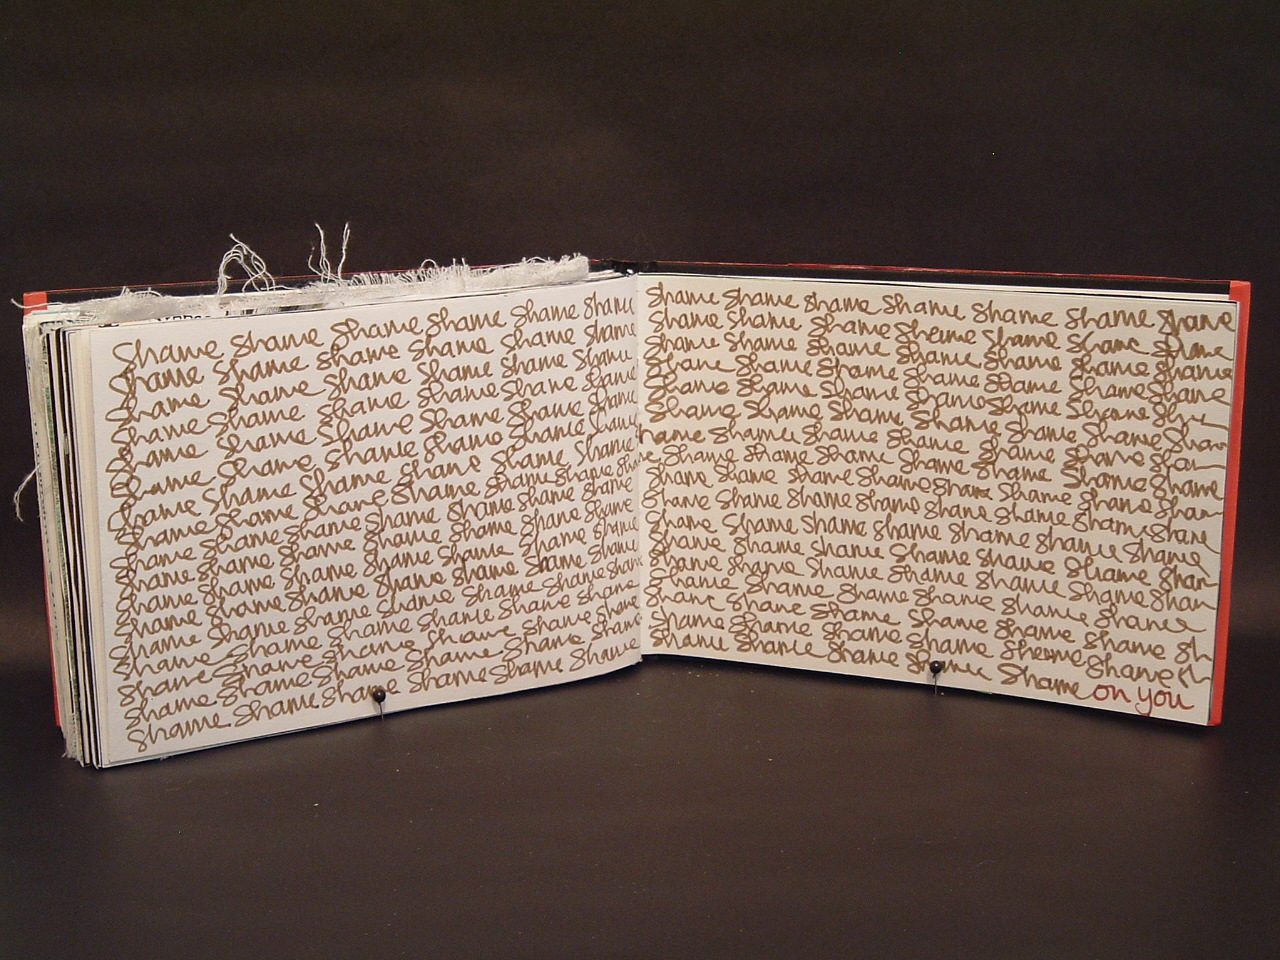 Shame Shame Shame Shame Shame Shame
Shame Shame Shame Shame Shame Shame
Shame Shame Shame Shame Shame Shame
Shame Shame Shame Shame Shame Shame
Shame Shame Shame Shame Shame Shame
Shame Shame Shame Shame Shame Shame
Shame Shame Shame Shame Shame Shame
Shame Shame Shame Shame Shame Shame Shame
Shame Shame Shame Shame Shame Shame Shame
Shame Shame Shame Shame Shame Shame Shame
Shame Shame Shame Shame Shame Shame Shame
Shame Shame Shame Shame Shame Shame Shame
Shame Shame Shame Shame Shame Shame Shame
Shame Shame Shame Shame Shame Shame
Shame Shame Shame Shame Shame Shame
Shame Shame Shame Shame Shame Shame
Shame Shame Shame Shame Shame Shame Shame
Shame Shame Shame Shame Shame Shame Shame
Shame Shame Shame Shame Shame Shame Shame
Shame Shame Shame Shame Shame Shame Shame
Shame Shame Shame Shame Shame Shame
Shame Shame Shame Shame Shame Shame Sham
Shame Shame Shame Shame Shame Shame
Shame Shame Shame Shame Shame Shame Shame
Shame Shame Shame Shame Shame Shame Sham
Shame Shame Shame Shame Shame Sham Shame
Shame Shame Shame Shame Shame Shame Shame
Shame Shame Shame Shame Shame Shame Shan
Shame Shame Shame Shame Shame Shame Sham
Shame Shame Shame Shame Shame Shame Shame
Shame Shame Shame Shame Shame Shame Sh
Shame Shame Shame Shame Shame Shame
Shame on you